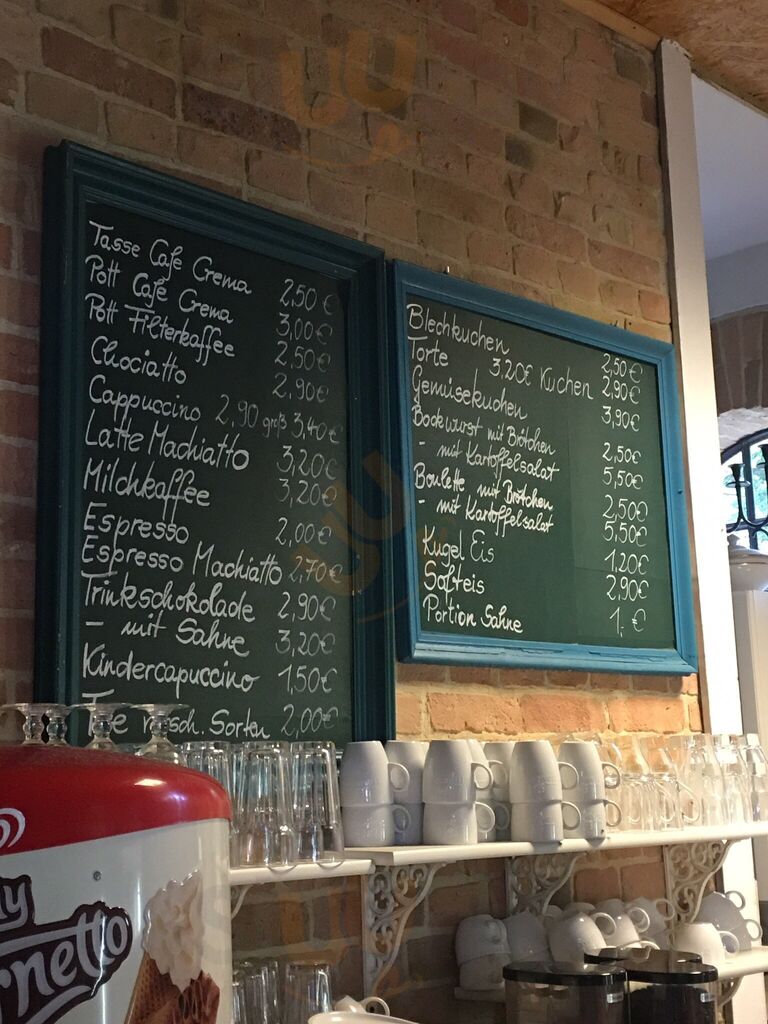 Tasse Cafe Crema 2,50 €
Pott Cafe Crema 3,00 €
Pott Filterkaffee 2,50 €
Chociatto 2,90 €
Cappuccino 2,90 groß 3,40 €
Latte Machiatto 3,20 €
Milchkaffee 3,20 €
Espresso 2,00 €
Espresso Machiatto 2,70 €
Trinkschokolade 2,90 €
- mit Sahne 3,20 €
Kindercapuccino 1,50 €
Tee versch. Sorten 2,00 €
Blechkuchen 2,50 €
Torte 3,20€ Kuchen 2,90 €
Gemüsekuchen 3,90 €
Bockwurst mit Brötchen 2,50 €
- mit Kartoffelsalat 5,50 €
Boulette mit Brötchen 2,50 €
- mit Kartoffelsalat 5,50 €
Kugel Eis 1,20 €
Softeis 2,90 €
Portion Sahne 1,- €
rnetto